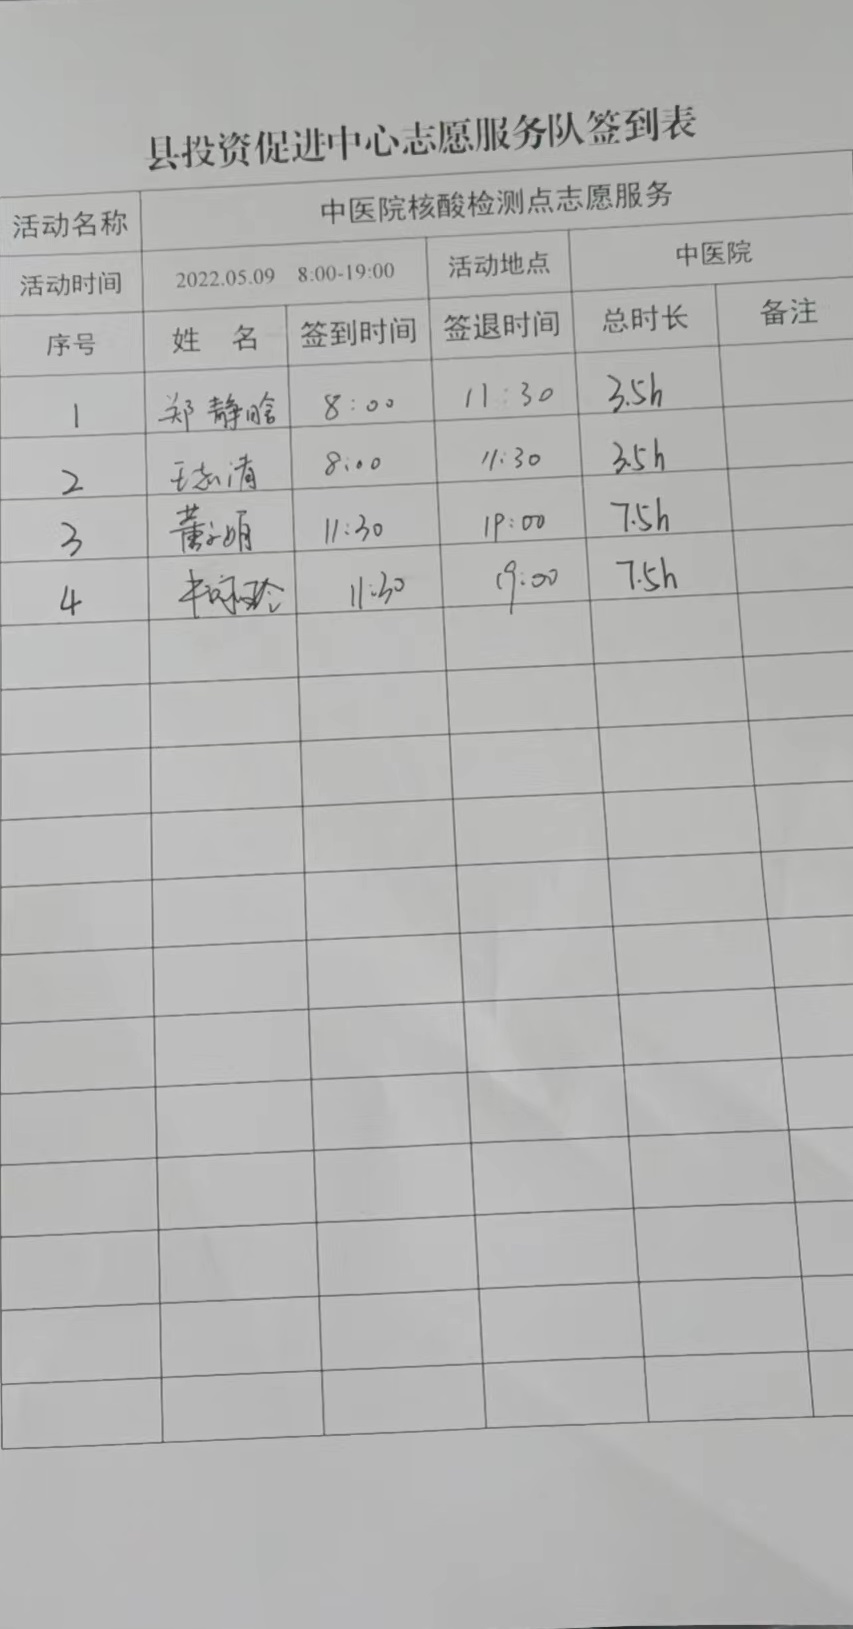 县投资促进中心志愿服务队签到表
活动名称 中医院核酸检测点志愿服务
活动时间 2022.05.09 8:00-19:00 活动地点 中医院
序号 姓 名 签到时间 签退时间 总时长 备注
1 郑静晗 8:00 11:30 3.5h
2 王志清 8:00 11:30 3.5h
3 董娟 11:30 19:00 7.5h
4 11:30 19:00 7.5h